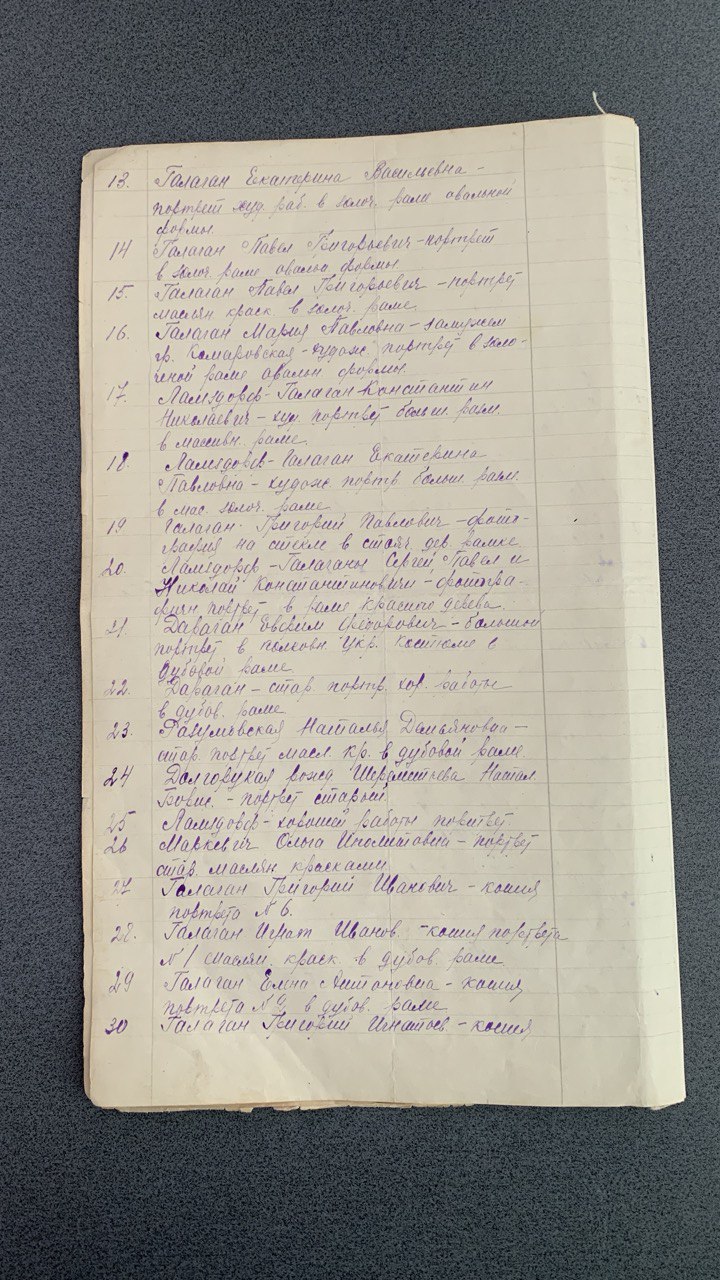 13. Галаган Екатерина Васильевна -
портрет худ. раб. в золоч. раме овальной
формы.
14 Галаган Павел Григорьевич - портрет
в золоч. раме овальн формы.
15. Галаган Павел Григорьевич - портрет
маслян краск. в золоч. раме.
16. Галаган Мария Павловна - замужем
гр. Комаровская - худож. портрет в золо-
ченой раме овальн формы.
17. Ламздорф-Галаган Константин
Николаевич - худ. портрет больш. разм.
в массивн. раме.
18. Ламздорф-Галаган Екатерина
Павловна - худож портр. больш. разм.
в мас. золоч. раме
19 Галаган Григорий Павлович - фото-
графия на стекле в стояч. дер. рамке
20. Ламздорф-Галаганы Сергей, Павел и
Николай Константиновичи - фотогра-
фич портрет в раме красного дерева.
21. Дараган Евфим Федорович - большой
портрет в полковн. укр. костюме в
дубовой раме
22. Дараган - стар. портр. хор. работы
в дубов. раме
23. Разумовская Наталья Демьяновна -
стар. портрет масл. кр. в дубовой раме.
24 Долгорукая рожд Шереметьева Натал.
Борис. - портрет старый
25 Ламздорф - хорошей работы портрет
26 Маркевич Ольга Иполитовна - портрет
стар. маслян красками.
27 Галаган Григорий Иванович - копия
портрета № 6.
28. Галаган Игнат Иванов. - копия портрета
№ 1 маслян. краск. в дубов. раме
29 Галаган Елена Антоновна - копия
портрета № в дубов. раме
30 Галаган Григорий Игнатов - копия